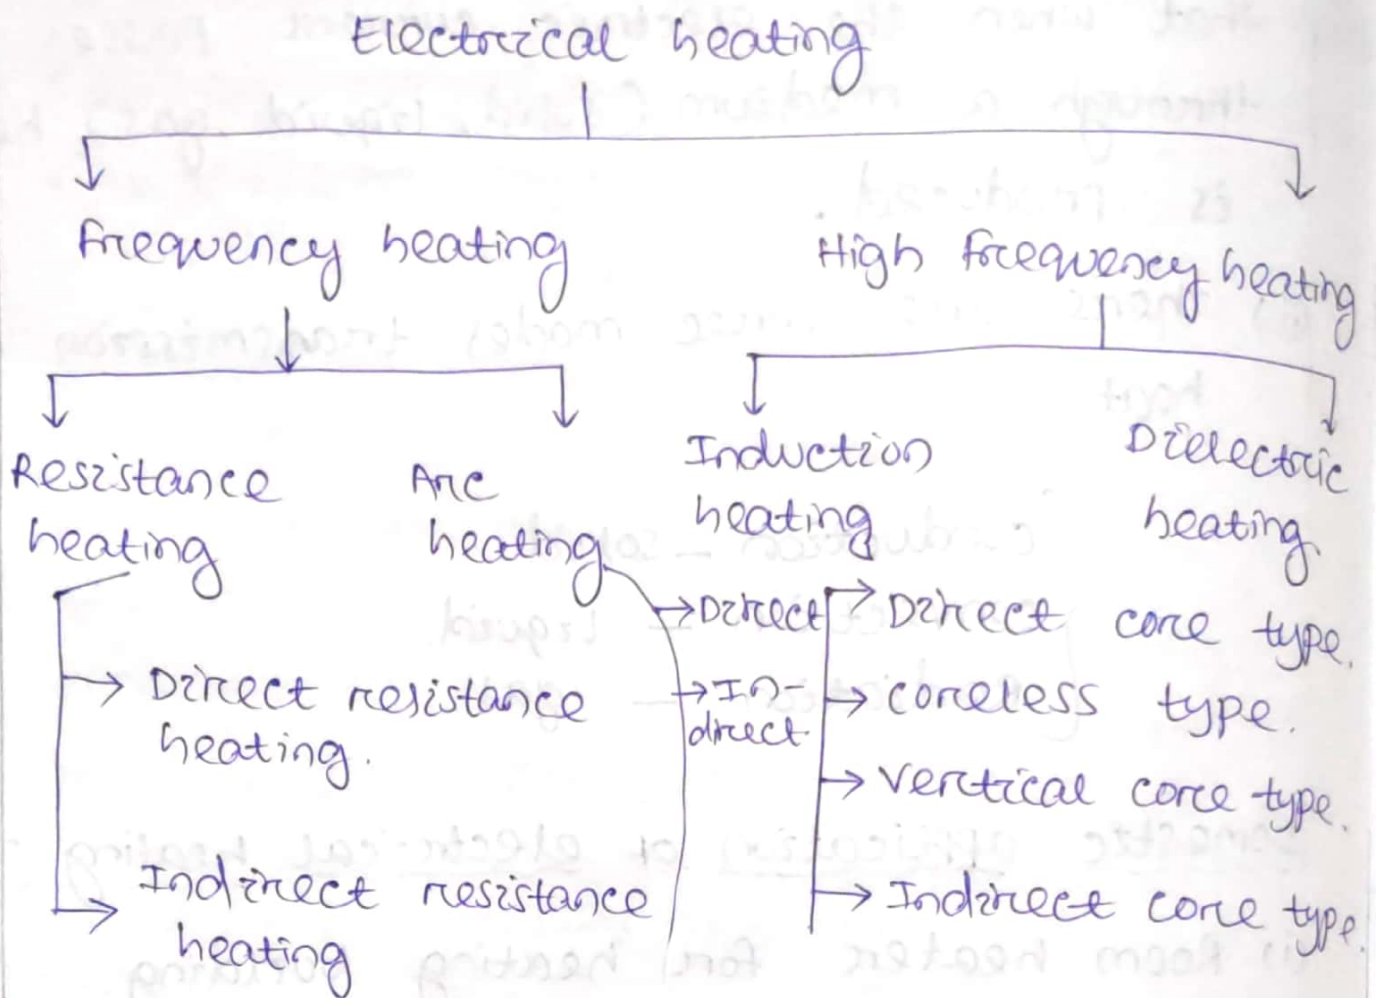 Electrical heating
Frequency heating
High frequency heating
Resistance heating
Arc heating
Induction heating
Dielectric heating
Direct resistance heating.
Indirect resistance heating
Direct
In-direct
Direct core type.
coreless type.
Vertical core type.
Indirect core type.